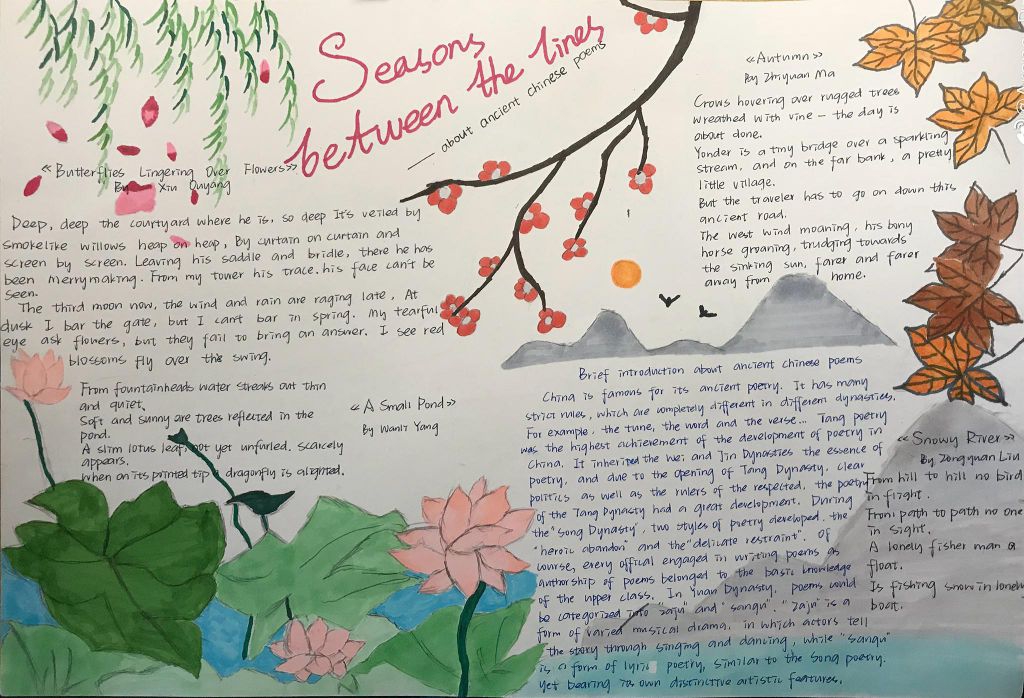 Seasons
between the lines
—— about ancient chinese poems
《Butterflies Lingering Over Flowers》
By Xiu Ouyang
Deep, deep the courtyard where he is, so deep It's veiled by
smokelike willows heap on heap, By curtain on curtain and
screen by screen. Leaving his saddle and bridle, there he has
been merrymaking. From my tower his trace. his face can't be
seen.
The third moon now, the wind and rain are raging late, At
dusk I bar the gate, but I can't bar in spring. My tearful
eye ask flowers, but they fail to bring an answer. I see red
blossoms fly over the swing.
From fountainheads water streaks out thin
and quiet.
Soft and sunny are trees reflected in the
pond.
A slim lotus leaf, not yet unfurled, scarcely
appears.
When on its printed tip a dragonfly is alighted.
《A Small Pond》
By Wanli Yang
《Autumn》
By Zhiyuan Ma
Crows hovering over rugged trees
wreathed with vine — the day is
about done.
Yonder is a tiny bridge over a sparkling
stream, and on the far bank, a pretty
little village.
But the traveler has to go on down this
ancient road.
The west wind moaning, his bony
horse groaning, trudging towards
the sinking sun, farer and farer
away from home.
Brief introduction about ancient chinese poems
China is famous for its ancient poetry. It has many
strict rules, which are completely different in different dynasties.
For example, the tune, the word and the verse... Tang poetry
was the highest achievement of the development of poetry in
China. It inherited the Wei and Jin Dynasties the essence of
poetry, and due to the opening of Tang Dynasty, clear
politics as well as the rulers of the respected, the poetry
of the Tang Dynasty had a great development. During
the "Song Dynasty", two styles of poetry developed, the
"heroic abandon" and the "delicate restraint". Of
course, every offical engaged in writing poems as
authorship of poems belonged to the basic knowledge
of the upper class. In Yuan Dynasty, poems would
be categorized into "zaju" and "sanqu". "Zaju" is a
form of varied musical drama, in which actors tell
the story through singing and dancing, while "sanqu"
is a form of lyric poetry, similar to the Song poetry.
yet bearing its own distinctive artistic features.
《Snowy River》
By Zongyuan Liu
From hill to hill no bird
in flight.
From path to path no one
in sight.
A lonely fisher man a
float.
Is fishing snow in lonely
boat.